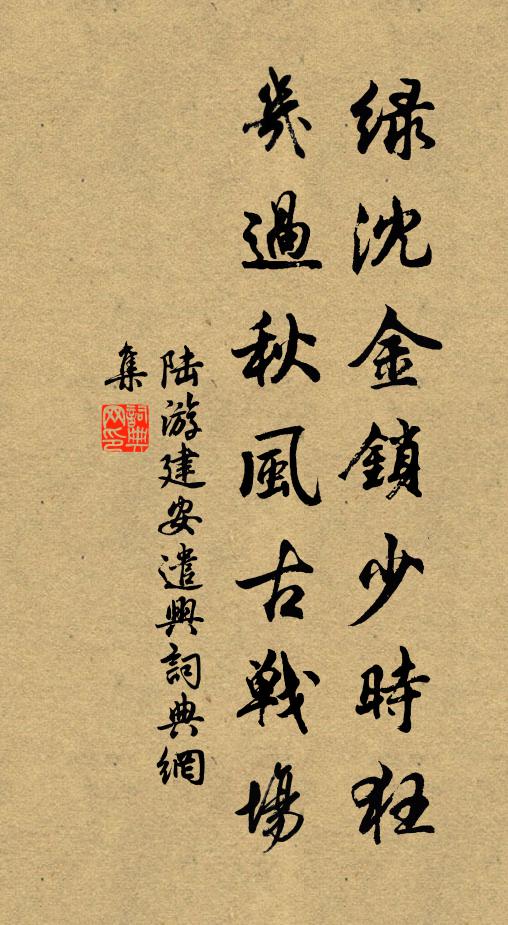 绿沈金鎖少時狂
幾過秋風古戦場
陆游建安遣興詞典網
集
詞典网印